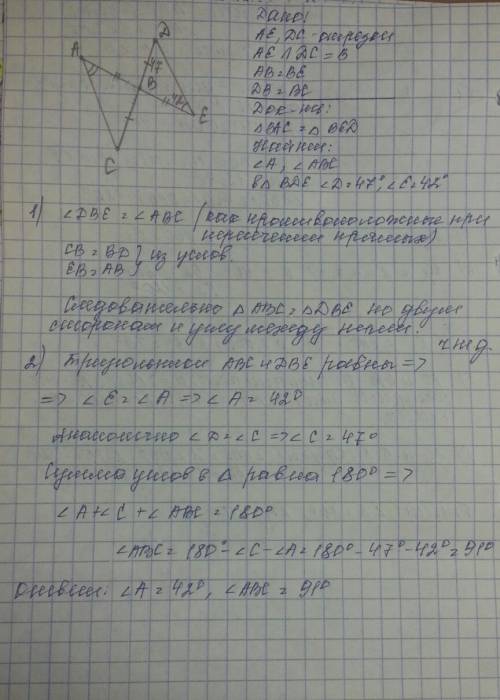 Дано:
AE, DC - отрезки
AE ∩ DC = B
AB = BE
DB = BC
Док-ть:
△BAC = △BED
Найти:
∠A, ∠ABC
В △ BDE ∠D = 47°, ∠E = 42°
A
D
47
B
42
E
C
1) ∠DBE = ∠ABC (как противоположные при
пересечении прямых)
CB = BD } из услов.
EB = AB }
Следовательно △ABC = △DBE по двум
сторонам и углу между ними.
ч.т.д.
2) Треугольники ABC и DBE равны =>
=> ∠E = ∠A => ∠A = 42°
Аналогично ∠D = ∠C => ∠C = 47°
Сумма углов в △ равна 180° =>
∠A + ∠C + ∠ABC = 180°
∠ABC = 180° - ∠C - ∠A = 180° - 47° - 42° = 91°
Ответ: ∠A = 42°, ∠ABC = 91°